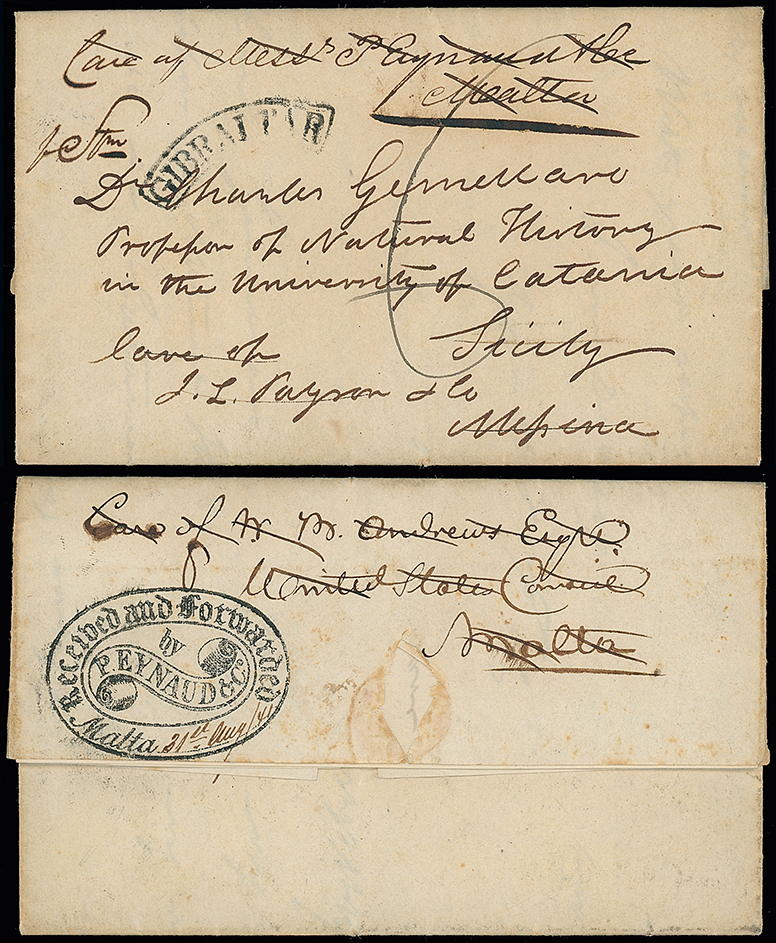 Care of Mess.rs P Eynaud & Co
Malta
p Stm.
GIBRALTAR
Dr Charles Gemellaro
Professor of Natural History
in the University of Catania
Sicily
Care of
J. L. Payson & Co
Messina
Care of W. W. Andrews Esqre.
United States Consul
Malta
Received and Forwarded
by
P. EYNAUD & Co.
Malta 31st Aug/41